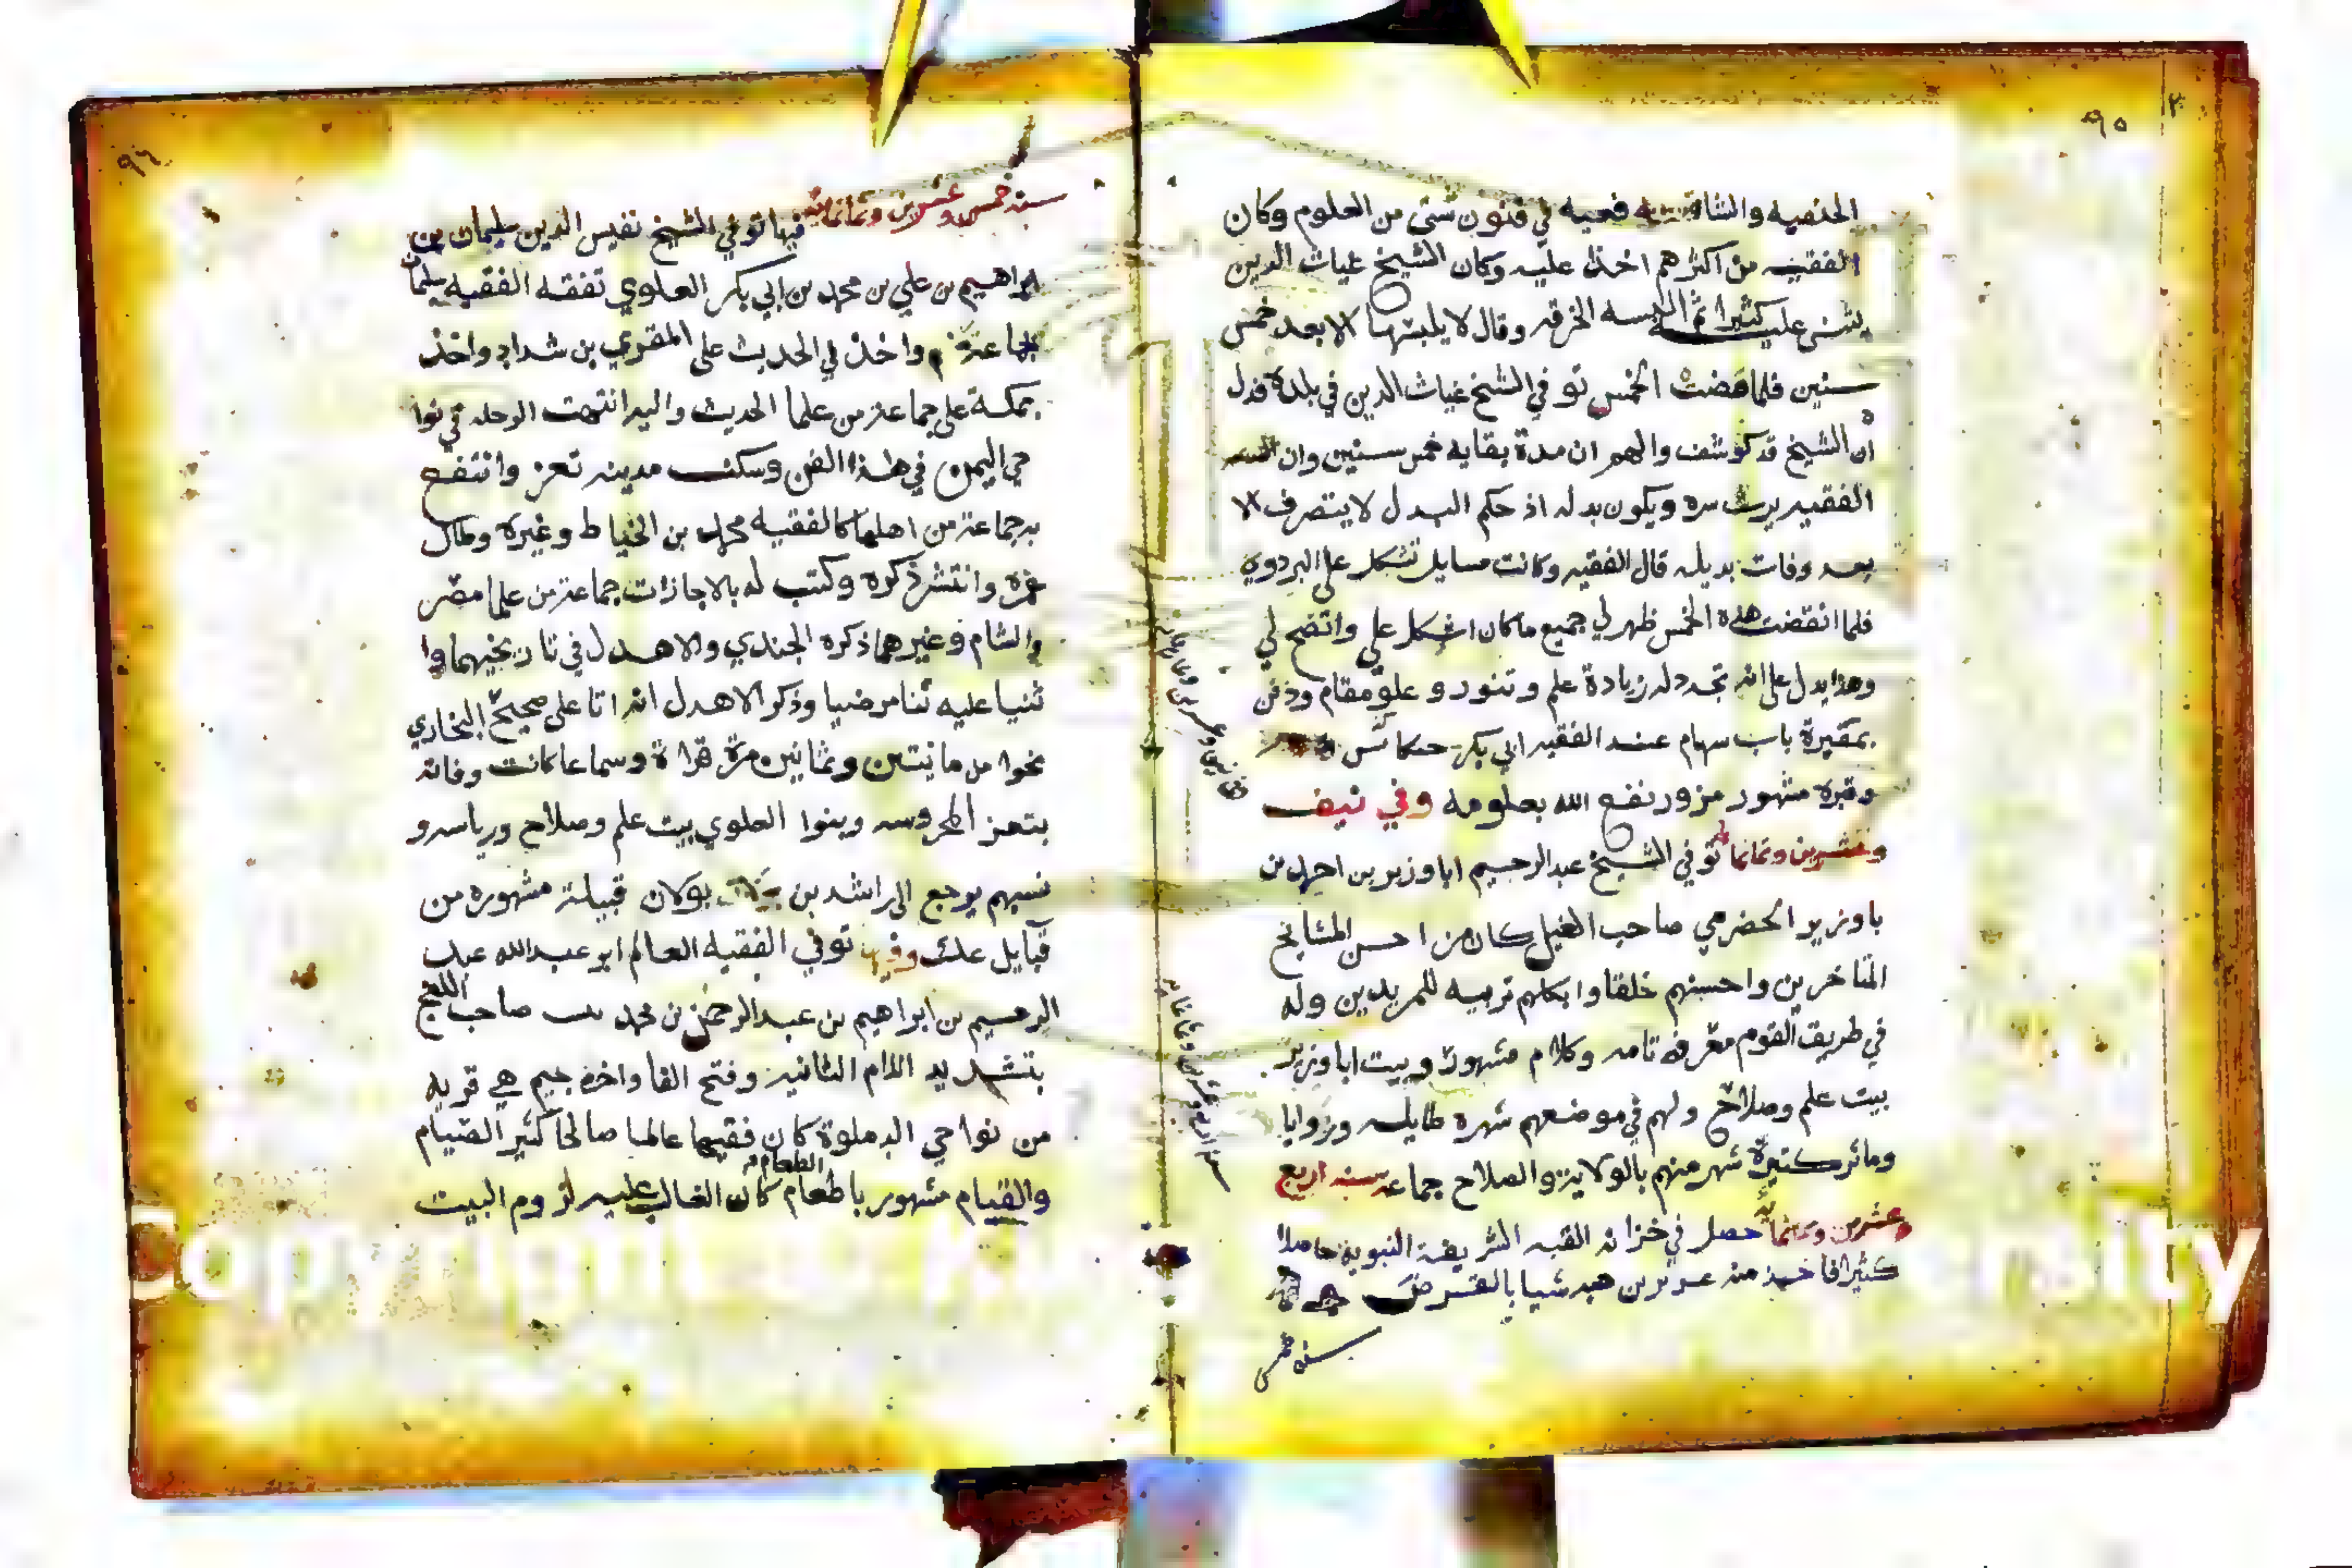 ٩٥
الحنفيه والشافعيه فعيه في فنون شتى من العلوم وكان
الفقيه من اكثرهم اخذا عليه وكان الشيخ غياث الدين
يثني عليه كثيرا ثم البسه الخرقه وقال لا يلبسها الا بعد خمس
سنين فلما مضت الخمس توفي الشيخ غياث الدين في بلده فدل
ان الشيخ قد كوشف والهم ان مدة بقايه خمس سنين وان
الفقيه يرث سره ويكون بدله اذ حكم البدل لا يتصرف الا
بعد وفات بديله قال الفقيه وكانت مسايل تشكل علي البزدوي
فلما انقضت هذه الخمس ظهر لي جميع ما كان اشكل علي واتضح لي
وهذا يدل على انه تجدد له زيادة علم وتنور وعلو مقام ودفن
بمقبرة باب سهام عند الفقيه ابي بكر
وقبره مشهور مزور نفع الله بعلومه وفي نيف
وعشرين وثمانمائة توفي الشيخ عبد الرحيم ابا وزير بن احمد بن
با وزير الحضرمي صاحب الغيل كان من احسن المشايخ
المتاخرين واحسنهم خلقا واكملهم تربيه للمريدين وله
في طريق القوم معرفه تامه وكلام مشهور وبيت ابا وزير
بيت علم وصلاح ولهم في موضعهم شهره طايله وزوايا
وماثر كثيرة شهر منهم بالولاية والصلاح جماعه سنه اربع
وعشرين وثمانمائة حصل في خزانه القبه الشريفة النبوية حاصلا
كثيرا فاخذ منه عزيز بن هبه شيا بالقرض
سنة خمس
سنه اربع وعشرين وثمانمائه
٩٦
سنة خمس وعشرين وثمانمائة فيها توفي الشيخ نفيس الدين سليمان بن
ابراهيم بن علي بن محمد بن ابي بكر العلوي تفقه الفقيه سليمان
بجماعة واخذ في الحديث على المقري بن شداد واخذ
بمكة على جماعة من علما الحديث واليه انتهت الرحله في نوا
حي اليمن في هذا الفن وسكن مدينه تعز وانتفع
به جماعة من اهلها كالفقيه محمد بن الخياط وغيره وطال
عمره وانتشر ذكره وكتب له بالاجازات جماعة من علما مصر
والشام وغيرهما ذكره الجندي والاهدل في تاريخيهما وا
ثنيا عليه ثنا مرضيا وذكر الاهدل انه اتا على صحيح البخاري
نحوا من مايتين وثمانين مرة قراة وسماعا كانت وفاته
بتعز المحروسه وبنوا العلوي بيت علم وصلاح ورياسه و
نسبهم يرجع الى راشد بن بولان قبيلة مشهوره من
قبايل عك وفيها توفي الفقيه العالم ابو عبد الله عبد
الرحيم بن ابراهيم بن عبد الرحمن بن محمد صاحب اللفج
بتشديد اللام الثانيه وفتح الفا واخره جيم هي قريه
من نواحي الدملوة كان فقيها عالما صالحا كثير الصيام
والقيام مشهور باطعام الطعام كان الغالب عليه لزوم البيت